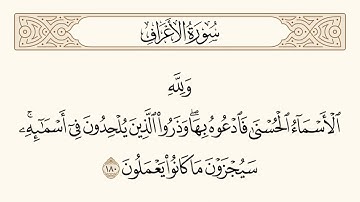 سُورَةُ الأَعْرَافِ
وَلِلَّهِ
ٱلْأَسْمَآءُ ٱلْحُسْنَىٰ فَٱدْعُوهُ بِهَاۖ وَذَرُوا۟ ٱلَّذِينَ يُلْحِدُونَ فِىٓ أَسْمَـٰٓئِهِۦۚ
سَيُجْزَوْنَ مَا كَانُوا۟ يَعْمَلُونَ ١٨٠